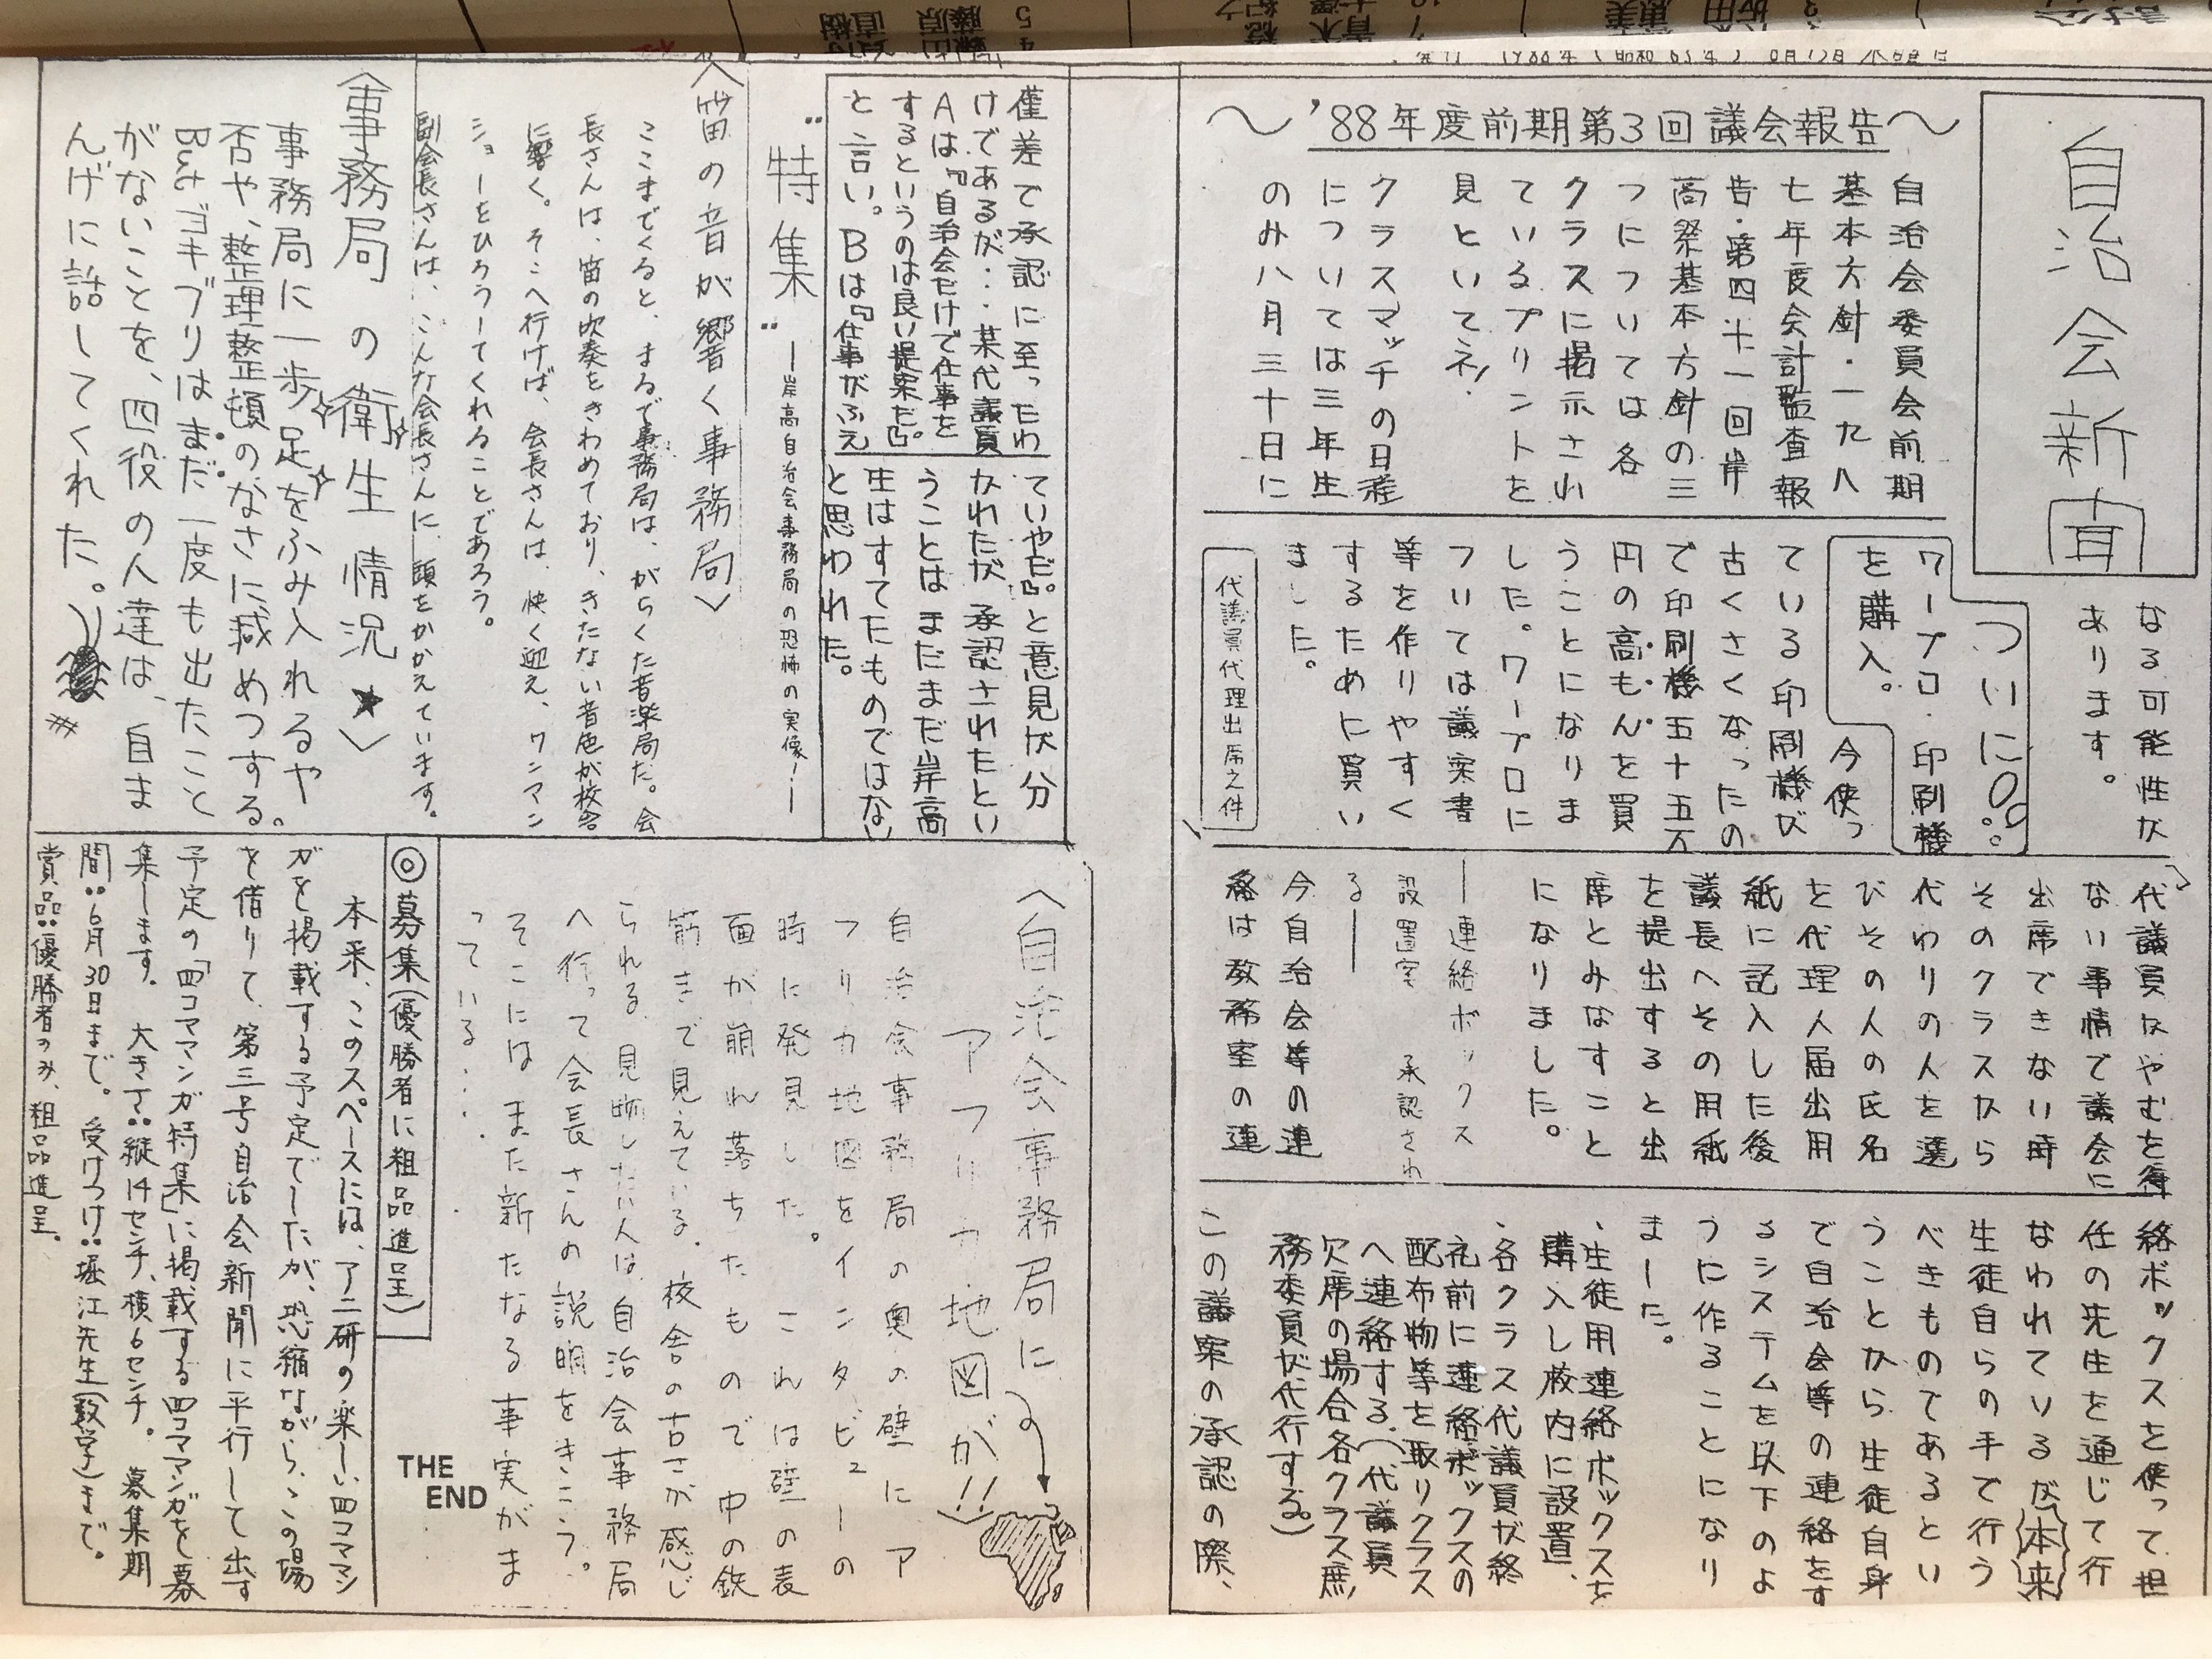 自治会新聞
〜'88年度前期第3回議会報告〜
自治会委員会前期
基本方針・一九八
七年度会計監査報
告・第四十一回岸
高祭基本方針の三
つについては各
クラスに掲示され
ているプリントを
見といてネ!
クラスマッチの日程
については三年生
のみ八月三十日に
なる可能性が
あります。
ついに
ワープロ・印刷機
を購入。
今使っ
ている印刷機が
古くさくなったの
で印刷機五十五万
円の高もんを買
うことになりま
した。ワープロに
ついては議案書
等を作りやすく
するために買い
ました。
代議員代理出席之件
代議員がやむを得
ない事情で議会に
出席できない時
そのクラスから
代わりの人を選
びその人の氏名
を代理人届出用
紙に記入した後
議長へその用紙
を提出すると出
席とみなすこと
になりました。
―連絡ボックス
設置案 承認され
る―
今自治会等の連
絡は教務室の連
絡ボックスを使って担
任の先生を通じて行
なわれているが本来
生徒自らの手で行う
べきものであるとい
うことから生徒自身
で自治会等の連絡をす
るシステムを以下のよ
うに作ることになり
ました。
・生徒用連絡ボックスを
購入し校内に設置、
・各クラス代議員が終
礼前に連絡ボックスの
配布物等を取りクラス
へ連絡する。(代議員
欠席の場合各クラス庶
務委員が代行する。)
この議案の承認の際、
僅差で承認に至ったわ
けであるが…某代議員
Aは『自治会だけで仕事を
するというのは良い提案だ。』
と言い。Bは『仕事がふえ
ていやだ。』と意見が分
かれたが、承認されたとい
うことはまだまだ岸高
生はすてたものではない
と思われた。
"特集"
―岸高自治会事務局の恐怖の実像!―
〈笛の音が響く事務局〉
ここまでくると、まるで事務局は、がらくた音楽局だ。会
長さんは、笛の吹奏をきわめており、きたない音色が校舎
に響く。そこへ行けば、会長さんは、快く迎え、ワンマン
ショーをひろうしてくれることであろう。
副会長さんは、こんな会長さんに、頭をかかえています。
〈事務局の衛生情況★〉
事務局に一歩足をふみ入れるや
否や、整理整頓のなさに滅めつする。
ゴキブリはまだ一度も出たこと
がないことを、四役の人達は、自ま
んげに話してくれた。
〈自治会事務局に
アフリカ地図が!!〉
自治会事務局の奥の壁にア
フリカ地図をインタビューの
時に発見した。これは壁の表
面が崩れ落ちたもので中の鉄
筋まで見えている。校舎の古さが感じ
られる。見物したい人は自治会事務局
へ行って会長さんの説明をきこう。
そこにはまた新たなる事実がま
っている・・・
THE
END
◎募集(優勝者に粗品進呈)
本来、このスペースには、アニ研の楽しい四コママン
ガを掲載する予定でしたが、恐縮ながら、この場
を借りて、第三号自治会新聞に平行して出す
予定の「四コママンガ特集」に掲載する四コママンガを募
集します。大きさ:縦14センチ、横6センチ。募集期
間:6月30日まで。受けつけ:堀江先生(数学)まで。
賞品:優勝者のみ、粗品進呈。